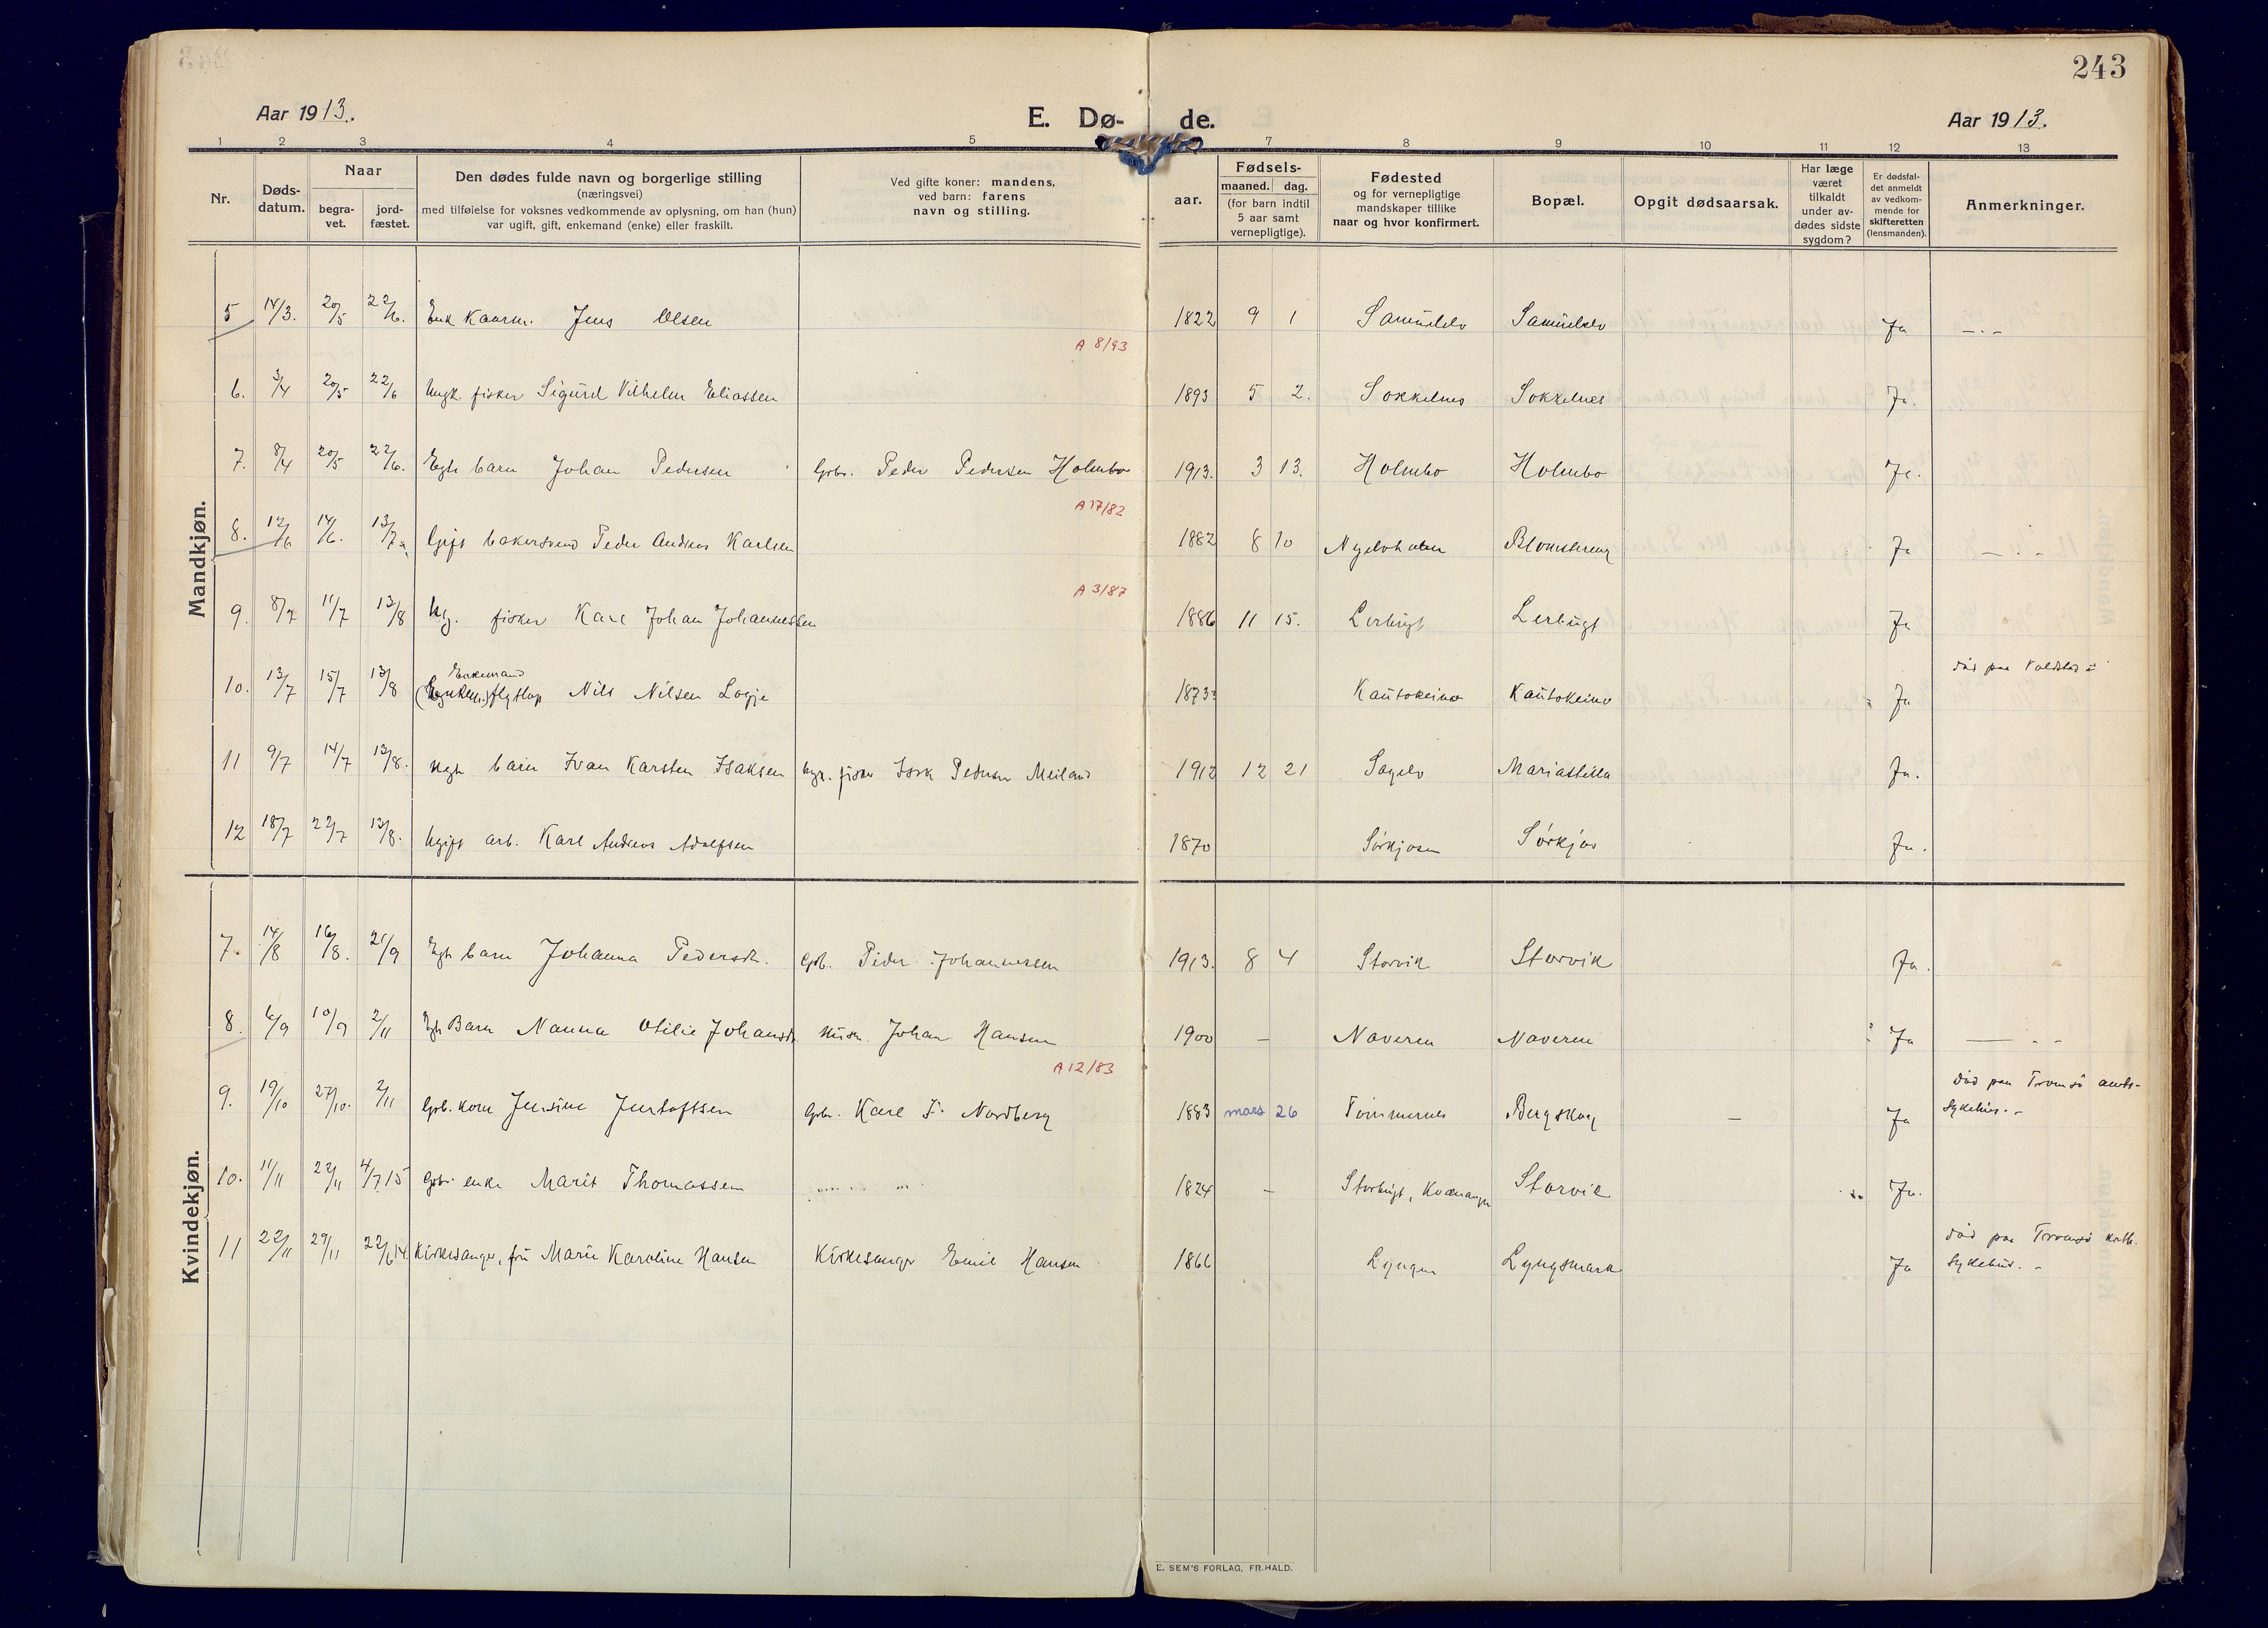 243
Aar 1913.
E. Dø- de.
Aar 1913.
1 2 3 4 5 7 8 9 10 11 12 13
Nr.
Døds-
datum.
Naar
begra-
vet.
jord-
fæstet.
Den dødes fulde navn og borgerlige stilling
(næringsvei)
med tilføielse for voksnes vedkommende av oplysning, om han (hun)
var ugift, gift, enkemand (enke) eller fraskilt.
Ved gifte koner: mandens,
ved barn: farens
navn og stilling.
Fødsels-
aar.
maaned. dag.
(for barn indtil
5 aar samt
vernepligtige).
Fødested
og for vernepligtige
mandskaper tillike
naar og hvor konfirmert.
Bopæl.
Opgit dødsaarsak.
Har læge
været
tilkaldt
under av-
dødes sidste
sygdom?
Er dødsfal-
det anmeldt
av vedkom-
mende for
skifteretten
(lensmanden).
Anmerkninger.
Mandkjøn.
5 14/3. 20/5 22/6. Enk Kaarm. Jens Olsen 1822 9 1 Samuelelv Samuelelv Ja — . —
A 8/93
6. 3/4 20/5 22/6 Ungk. fisker Sigurd Vilhelm Eliassen 1893 5 2. Sokkelnes Sokkelnes Ja.
7. 8/4 20/5 22/6. Egte barn Johan Pedersen Gbr. Peder Pedersen Holmbo 1913. 3 13. Holmbo Holmbo Ja.
A 17/82
8. 12/6 14/6. 13/7 Gift bakersvend Peder Andreas Karlsen 1882 8 10 Blomstereng Ja — . —
A 3/87
9. 8/7 11/7 13/8 Ug. fisker Karl Johan Johannessen 1886 11 15. Lerbugt Lerbugt Ja
død paa
Enkemand
10. 13/7 15/7 13/8 flytlap Nils Nilsen Logje 1873 Kautokeino Kautokeino Ja
11 9/7 14/7 13/8. Uegte barn Ivan Karsten Isaksen fisker Isak Pedersen Meiland 1912 12 21 Sagelv Mariastilla Ja.
12 18/7 22/7 13/8. Ugift arb. Karl Andreas Adolfsen 1870 Sørkjosen Sørkjos Ja.
Kvindekjøn.
7. 14/8 16/8. 21/9 Egte barn Johanna Pedersdt. Gb. Peder Johannessen 1913. 8 4 Storvik Storvik Ja.
8. 6/9 10/9 2/11 Egte Barn Nanna Otilie Johansdt. Husm. Johan Hansen 1900 — Naveren Naveren Ja — . . —
A 12/83
død paa Tromsø amts-
9. 19/10 27/10. 2/11 Gb. kone Jensine Justoftsen Gbr. Karl F. Nordberg 1883 mars 26 Tømmernes Bergskog — Ja sykehus. —
10. 11/11 22/11 4/7 15 Gbr. enke Marit Thomassen 1824 — Storbugt, Kvænangen Storvik Ja.
død paa Tromsø kath.
11 22/11 29/11 22/6 14 Kirkesanger, fru Marie Karoline Hansen Kirkesanger Emil Hansen 1866 Lyngen Lyngsmark Ja sykehus. —
E. SEM'S FORLAG, FR.HALD.